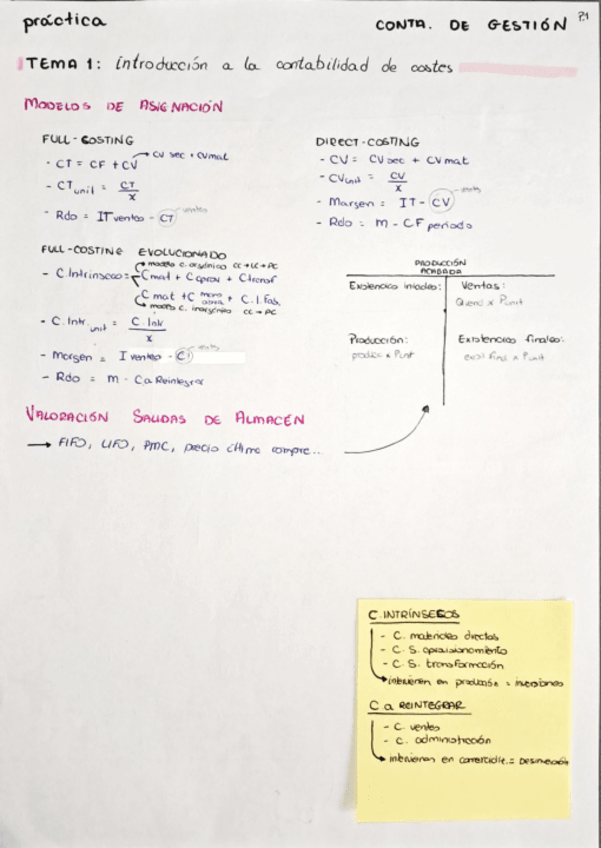 práctica
CONTA. DE GESTIÓN
P.1
TEMA 1: introducción a la contabilidad de costes
MODELOS DE ASIGNACIÓN
FULL-COSTING
- CT = CF + CV → CV sec + CVmat
- CTunit = CT/X
- Rdo = ITventas - CT ventas
DIRECT-COSTING
- CV = CVsec + CVmat
- CVunit = CV/X
- Margen = IT - CV ventas
- Rdo = M - CF periodo
FULL-COSTING EVOLUCIONADO
modelo c. orgánico CC→LC→PC
- C.Intrínseco = Cmat + Caprov + Ctransf
C mat + C mano obra + C.I.Fab.
modelo c. inorgánico CC→PC
- C.Intr.unit = C.Intr/X
- Margen = I ventas - Ci ventas
- Rdo = M - C.a Reintegrar
PRODUCCIÓN ACABADA
Existencias iniciales:
Ventas:
Qvend x Punit
Producción:
produce x Punit
Existencias finales:
exist final x Punit
VALORACIÓN SALIDAS DE ALMACÉN
→ FIFO, LIFO, PMC, precio última compra...
C.INTRÍNSECOS
- C. materiales directos
- C. S. aprovisionamiento
- C. S. transformación
intervienen en producción = inversiones
C a REINTEGRAR
- C. ventas
- C. administración
intervienen en = Desinversión